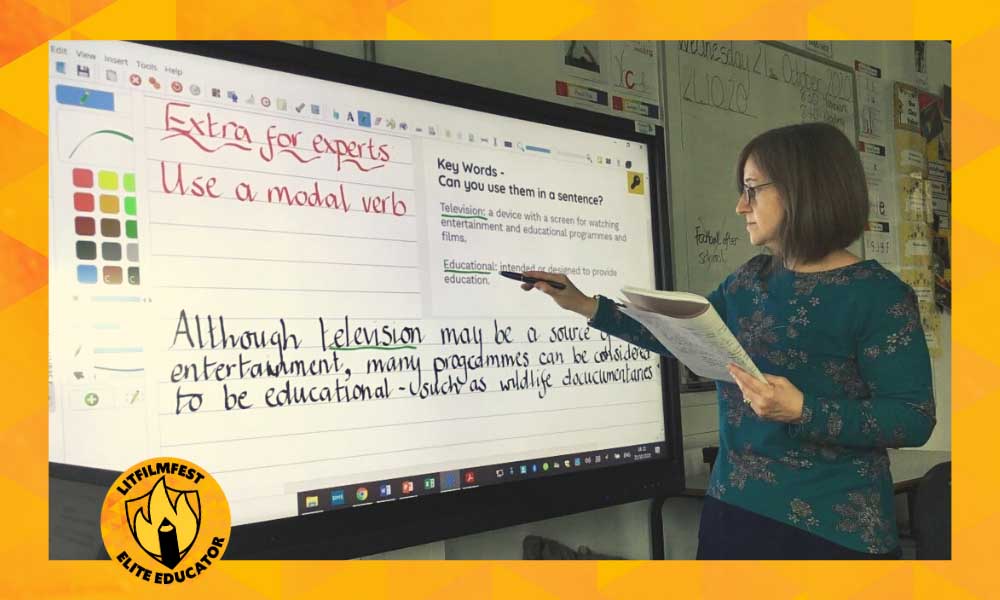 Edit View Insert Tools Help
Extra for experts
Use a modal verb
Key Words -
Can you use them in a sentence?
Television: a device with a screen for watching
entertainment and educational programmes and
films.
Educational: intended or designed to provide
education.
Although television may be a source
entertainment, many programmes can be considered
to be educational - such as wildlife docucumentaries
Wednesday 21st October
21.10.20
Football after
school
LITFILMFEST
ELITE EDUCATOR